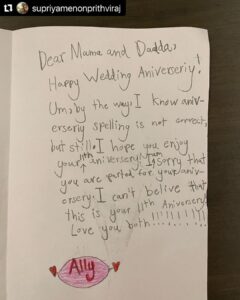 supriyamenonprithviraj
Dear Mama and Dadda,
Happy Wedding Aniverseriy!
Um, by the way, I know aniv-
erseriy spelling is not correct,
but still. I hope you enjoy
your 11th aniversery. I am sorry that
you are parted for your aniv-
ersery. I can't belive that
this is your 11th Aniversery
Love you both!!!!!!!!!!
Ally